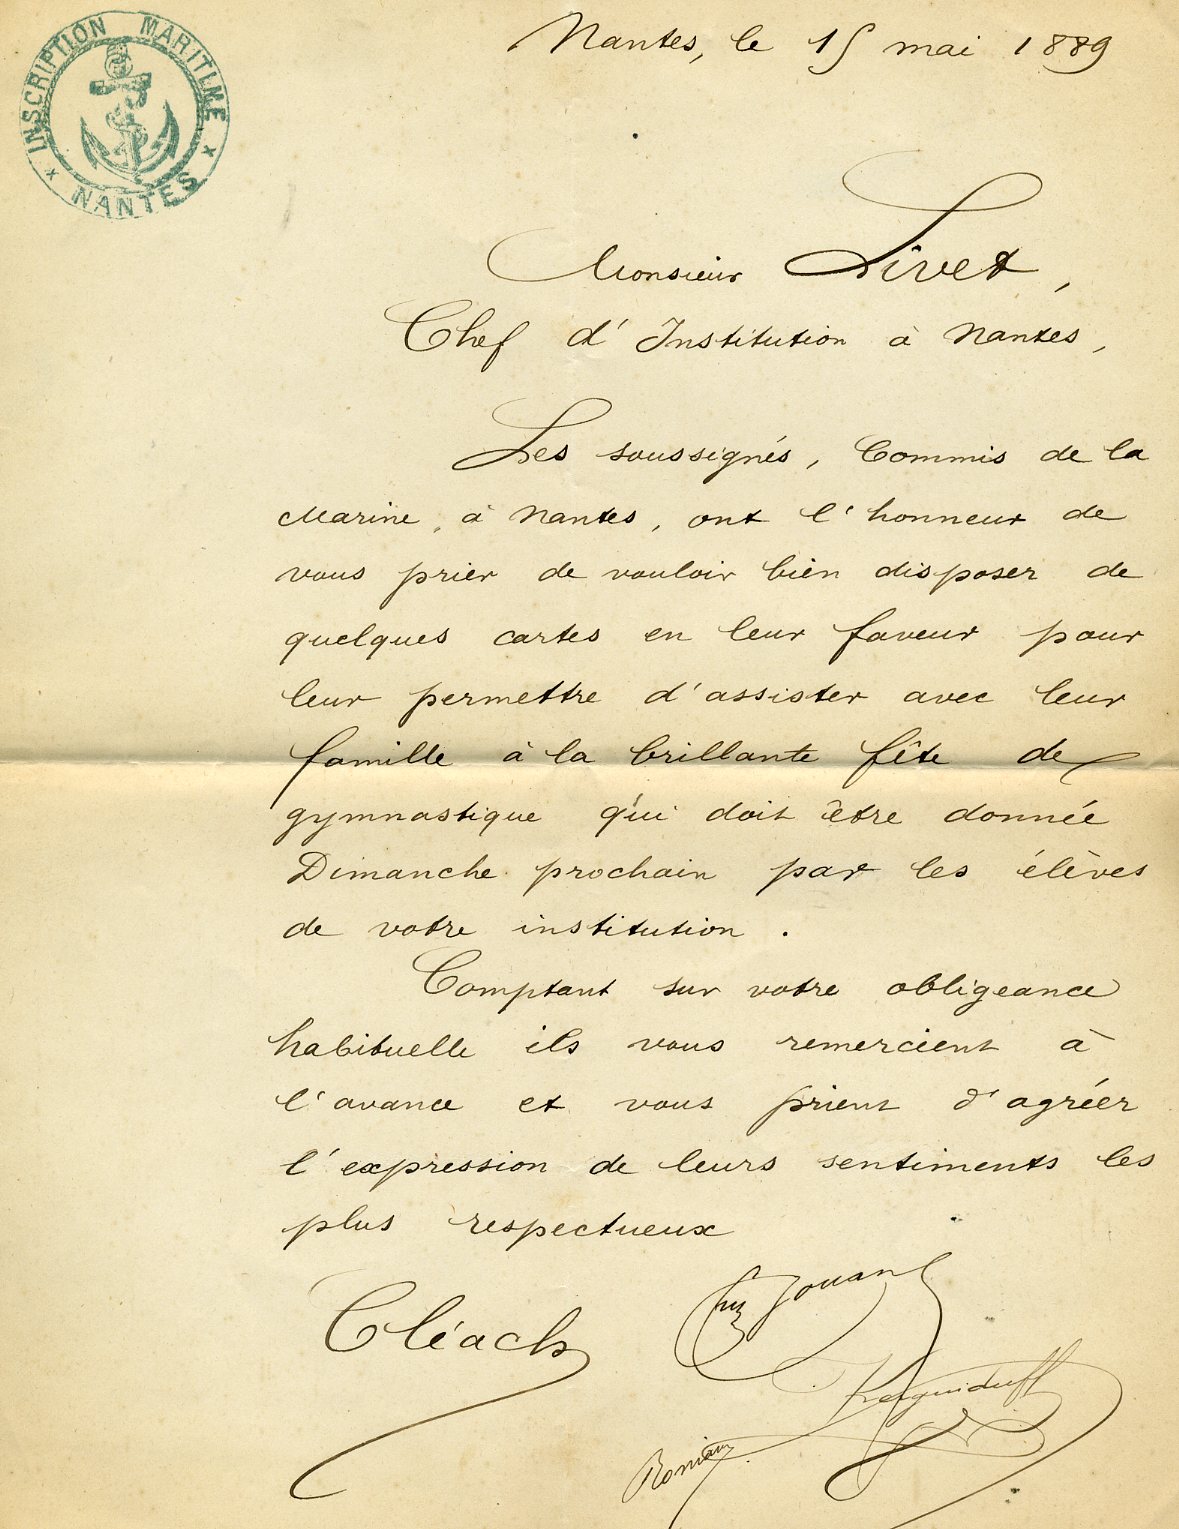 INSCRIPTION MARITIME
× NANTES ×
Nantes, le 15 mai 1889
Monsieur Livet,
Chef d'Institution à Nantes,
Les soussignés, Commis de la
Marine, à Nantes, ont l'honneur de
vous prier de vouloir bien disposer de
quelques cartes en leur faveur pour
leur permettre d'assister avec leur
famille à la brillante fête de
gymnastique qui doit être donnée
Dimanche prochain par les élèves
de votre institution.
Comptant sur votre obligeance
habituelle ils vous remercient à
l'avance et vous prient d'agréer
l'expression de leurs sentiments les
plus respectueux
Cléach
Jouan